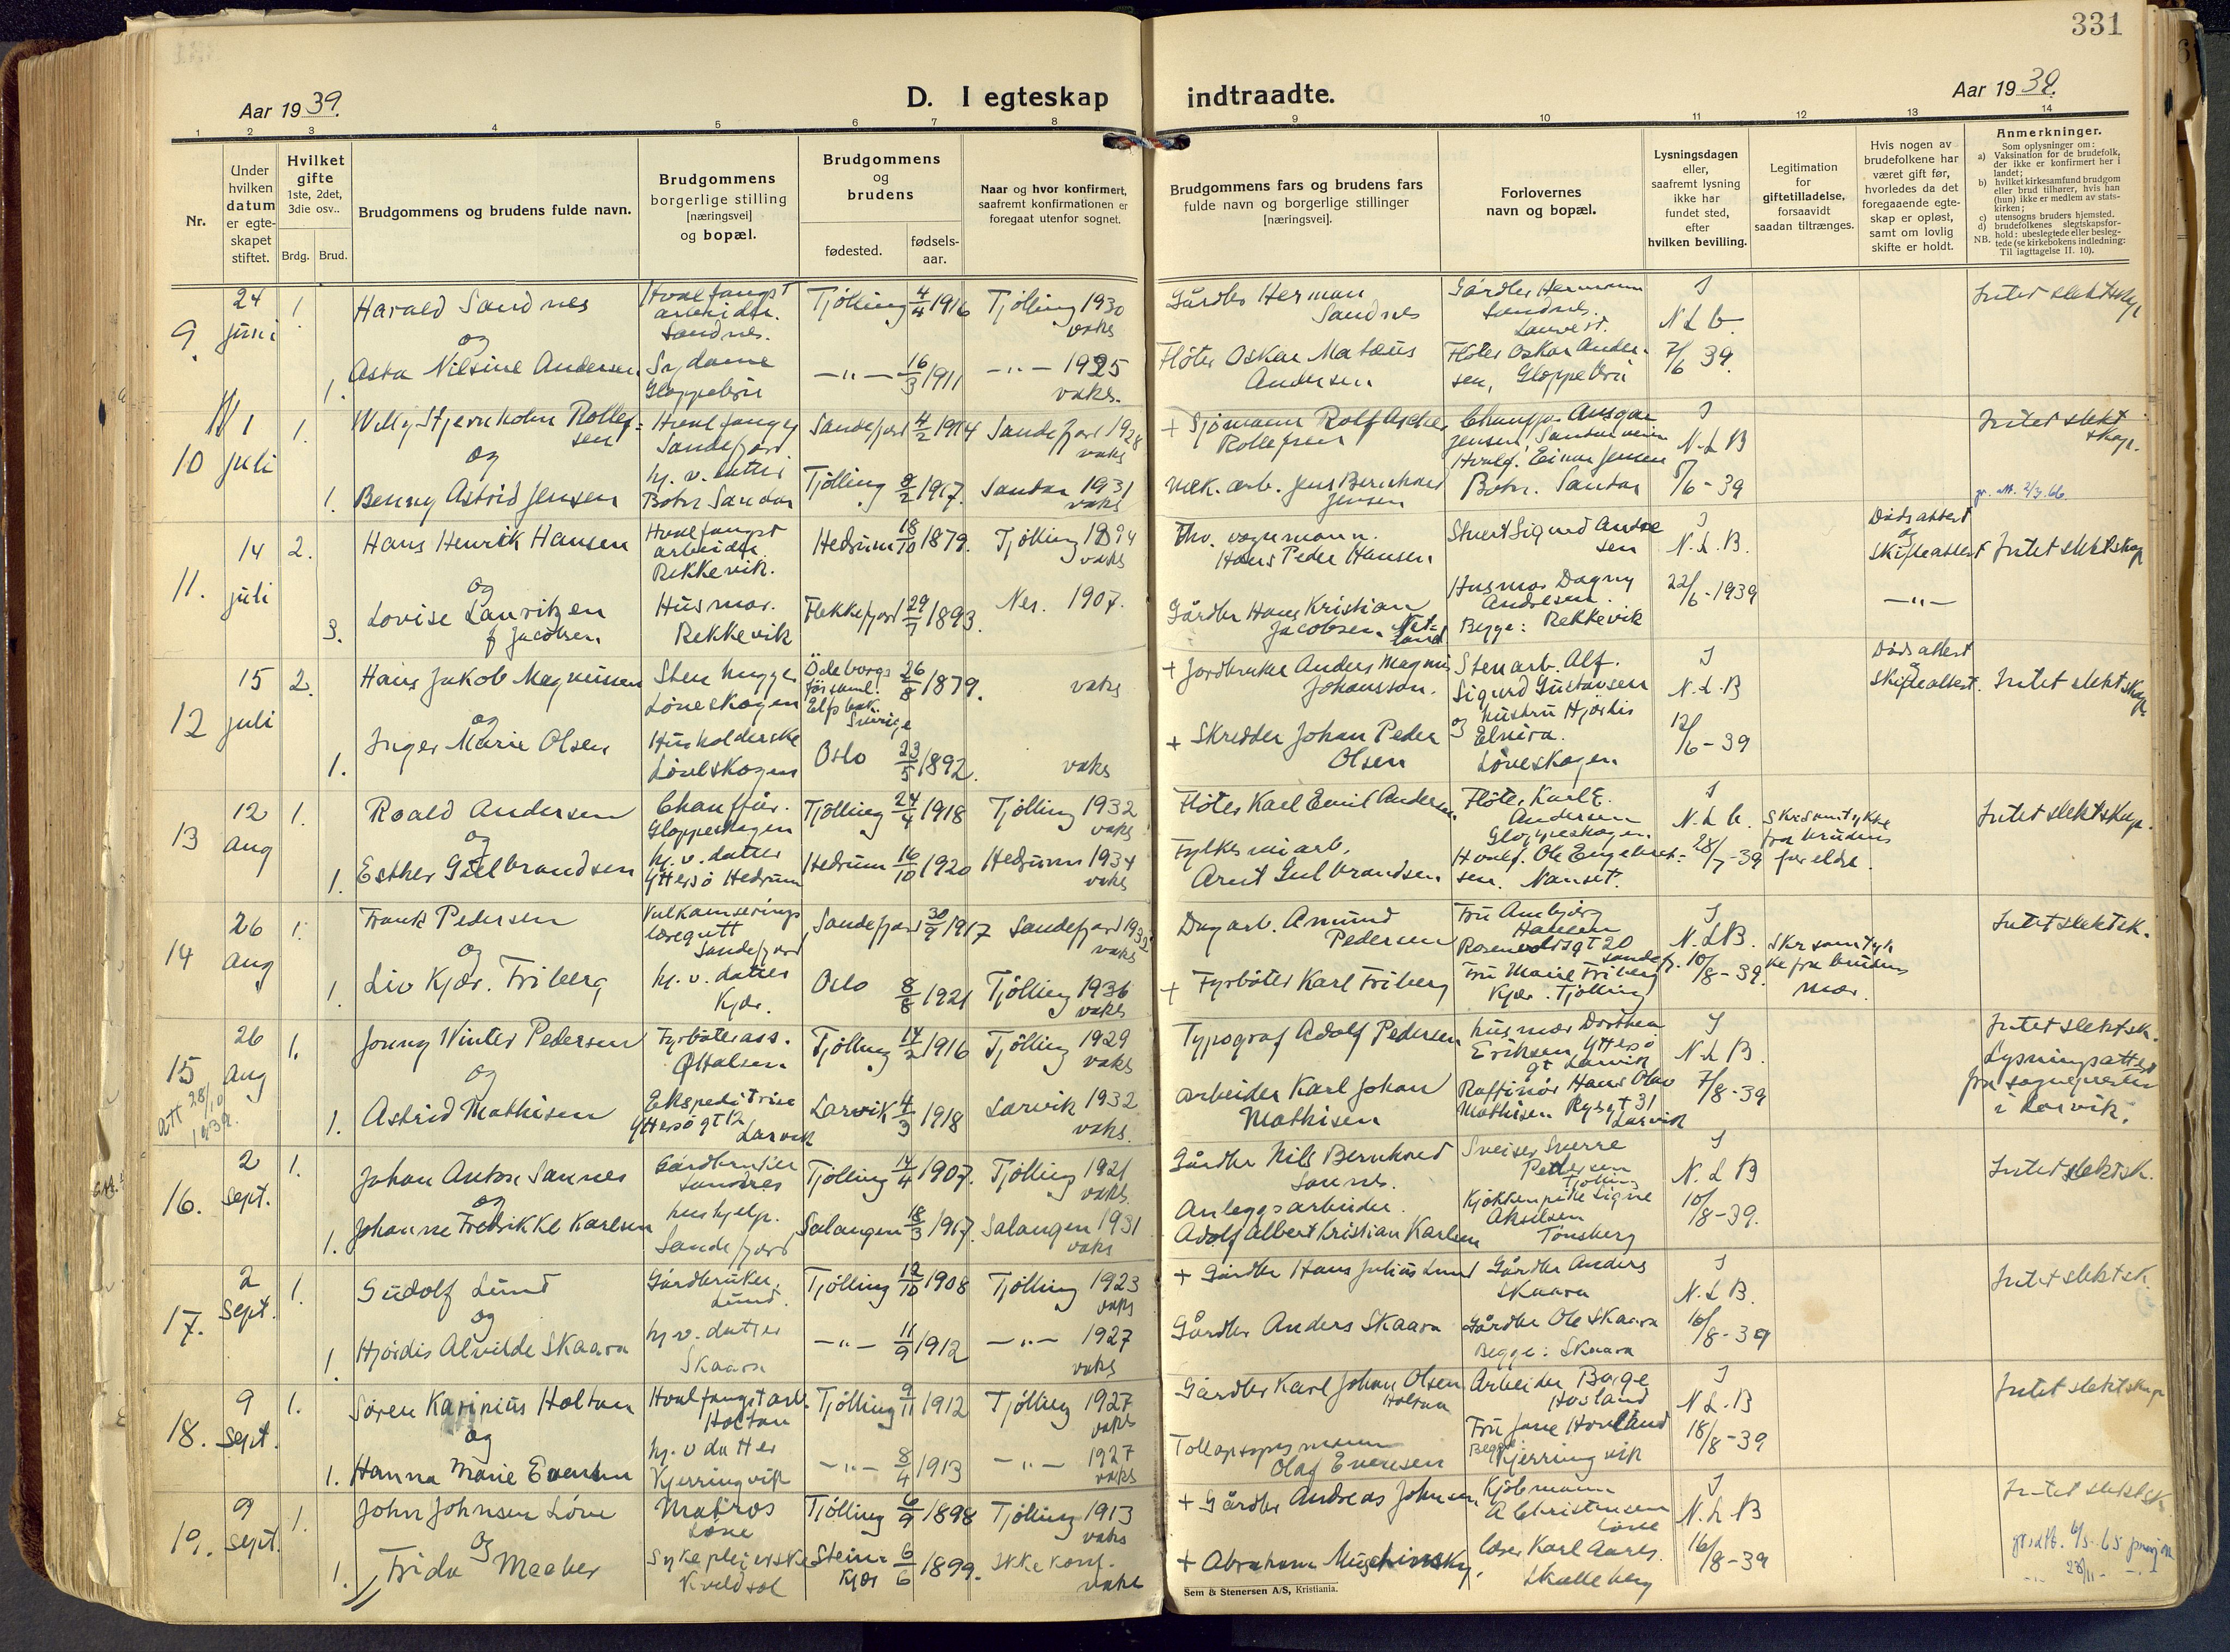 331
Aar 1939.
D. I egteskap indtraadte.
Aar 1939.
1 2 3 4 5 6 7 8 9 10 11 12 13 14
Nr.
Under hvilken datum er egte-skapet stiftet.
Hvilket gifte 1ste, 2det, 3die osv..
Brdg. Brud.
Brudgommens og brudens fulde navn.
Brudgommens borgerlige stilling [næringsvei] og bopæl.
Brudgommens og brudens
fødested.
fødsels-aar.
Naar og hvor konfirmert, saafremt konfirmationen er foregaat utenfor sognet.
Brudgommens fars og brudens fars fulde navn og borgerlige stillinger [næringsvei].
Forlovernes navn og bopæl.
Lysningsdagen eller, saafremt lysning ikke har fundet sted, efter hvilken bevilling.
Legitimation for giftetilladelse, forsaavidt saadan tiltrænges.
Hvis nogen av brudefolkene har været gift før, hvorledes da det foregaaende egte-skap er opløst, samt om lovlig skifte er holdt.
Anmerkninger.
Som oplysninger om:
a) Vaksination for de brudefolk, der ikke er konfirmert her i landet;
b) hvilket kirkesamfund brudgom eller brud tilhører, hvis han (hun) ikke er medlem av stats-kirken;
c) utensogns bruders hjemsted.
d) brudefolkenes slegtskapsfor-hold: ubeslegtede eller besleg-tede (se kirkebokens indledning:
NB. Til iagttagelse II. 10).
9. 24 juni 1. Harald Sandnes Hvalfangst arbeider. Sandnes. Tjølling 4/4 1916 Tjølling 1930 vaks Gårdbr Herman Sandnes Gårdbr Hermann Sandnes. Lauvest. J N L b. Intet slektskap
og
1. Asta Nilsine Andersen Sydame Gloppebru -"- 16/3 1911 -"- 1925 vaks. Fløter Oskar Matæus Andersen Fløter Oskar Andersen, Gloppebru 7/6 39.
10 1 juli 1. Willy Stjernholm Rollefsen Hvalfanger Sandefjord Sandefjord 4/2 1914 Sandefjord 1928 vaks + Sjømann Rolf Rollefsen Chauffør Ansgar Jensen, Sandar J N. L B Intet slektskap.
og
1. Benny Astrid Jensen hj. v. datter Botn Sandar Tjølling 8/2 1917. Sandar 1931 vaks Mek. arb. Jens Bernhard Jensen Hvalf. Einar Jensen Botn. Sandar 5/6 - 39 gr. att. 2/3.66.
11. 14 juli 2. Hans Henrik Hansen Hvalfangst arbeider. Rekkevik. Hedrum 18/10 1879. Tjølling 1894 vaks Thv. vognmann. Hans Peder Hansen Stuert Sigurd Andresen J N. L. B. Dødsattest og skifteattest Intet slektskap
og
3. Lovise Lauritzen f Jacobsen Husmor. Rekkevik Flekkefjord 29/7 1893. Nes. 1907. Gårdbr Hans Kristian Jacobsen. Netland Husmor Dagny Andresen. Begge: Rekkevik 22/6 - 1939 -"-
12 15 juli 2. Hans Jakob Magnussen Stenhugger Løveskogen Ödeborgs församl. Elfsbok. Sverige 26/8 1879. vaks + Jordbruker Anders Magnus Johansson. Stenarb. Alf. Sigurd Gustavsen J N. L. B Dødsattest & skifteattest. Intet slektskap
og
1. Inger Marie Olsen Husholderske Løveskogen Oslo 23/5 1892. vaks + Skredder Johan Peder Olsen og hustru Hjørdis Elvira. Løveskogen 12/6 - 39
13 12 aug 1. Roald Andersen Chauffør. Gloppeskogen Tjølling 24/4 1918 Tjølling 1932 vaks Fløter Karl Emil Andersen Fløter Karl E. Andersen Gloppeskogen. J N. L b. Skr samtykke fra brudens foreldre. Intet slektskap.
og
1. Esther Gulbrandsen hj. v. datter Yttersø Hedrum Hedrum 16/10 1920 Hedrum 1934 vaks Fylkesveiarb. Arnt Gulbrandsen Hvalf. Ole Engebretsen. Nanset. 28/7 - 39
14 26 aug 1. Frank Pedersen Vulkaniserings læregutt Sandefjord Sandefjord 30/9 1917 Sandefjord 1932 vaks Dagarb. Amund Pedersen Fru Ambjørg Hansen Rosenvoldsgt 20 Sandefj. J N. L B. Skr samtykke fra brudens mor. Intet slektsk.
og
1. Liv Kjær. Friberg hj. v. datter Kjær. Oslo 8/8 1921 Tjølling 1936 vaks + Fyrbøter Karl Friberg Fru Marie Friberg Kjær. Tjølling 10/8 - 39.
15 26 aug 1. Jonny Winter Pedersen Fyrbøterass. Østalsen Tjølling 14/2 1916 Tjølling 1929 vaks Typograf Adolf Pedersen husmor Dorthea Eriksen Yttersø gt Larvik J N. L B. Intet slektsk. Lysningsattest fra sognepresten i Larvik.
og
att 28/10 1939.
1. Astrid Mathisen Ekspeditrise Yttersøgt 12 Larvik Larvik 4/3 1918 Larvik 1932 vaks. arbeider Karl Johan Mathisen Raffinør Hans Olav Mathisen Larvik 7/8 - 39
16. 2 sept. 1. Johan Anton Sannes Gårdbruker Sandnes Tjølling 14/4 1907. Tjølling 1921 vaks. Gårdbr Nils Bernhard Sannes. Sveiser Sverre Pettersen Tjølling J N. L B Intet slektsk.
og
1. Johanne Fredrikke Karlsen hushjelp. Sandefjord Salangen 18/3 1917. Salangen 1931 vaks Anleggsarbeider. Adolf Albert Kristian Karlsen Kjøkkenpike Signe Akselsen Tønsberg 10/8 - 39.
17. 2 Sept. 1. Gudolf Lund Gårdbruker. Lund. Tjølling 12/10 1908 Tjølling 1923 vaks + Gårdbr Hans Julius Lund Gårdbr Anders Skaara J N. L B. Intet slektsk
og
1 Hjørdis Alvilde Skaara hj v. datter Skaara -"- 11/9 1912 -"- 1927 vaks Gårdbr Anders Skaara Gårdbr Ole Skaara Begge: Skaara 16/8 - 39
18. 9 Sept. 1. Søren Karinius Holtan Hvalfangstarb. Holtan Tjølling 9/11 1912 Tjølling 1927 vaks Gårdbr Karl Johan Olsen Holtan Arbeider Børge Hovland J N L. B Intet slektskap
og
1. Hanna Marie Evensen hj. v datter Kjerringvik -"- 8/4 1913 -"- 1927 vaks Tollopsynsmann Olaf Evensen Fru Jane Hovland Begge Kjerringvik 18/8 - 39
19. 9 Sept. 1. John Johnsen Løve Matros Løve Tjølling 6/9 1898 Tjølling 1913 vaks + Gårdbr Andreas Johnsen Kjøbmann A Christensen Løve J N. L B Intet slektsk
og
1. Frida Meeker Sykepleierske Kveldsol Steinkjær 6/6 1899. Ikke konf. vaks + Abraham Lærer Karl Aarls. Skalleberg 16/8 - 39
Sem & Stenersen A/S, Kristiania.